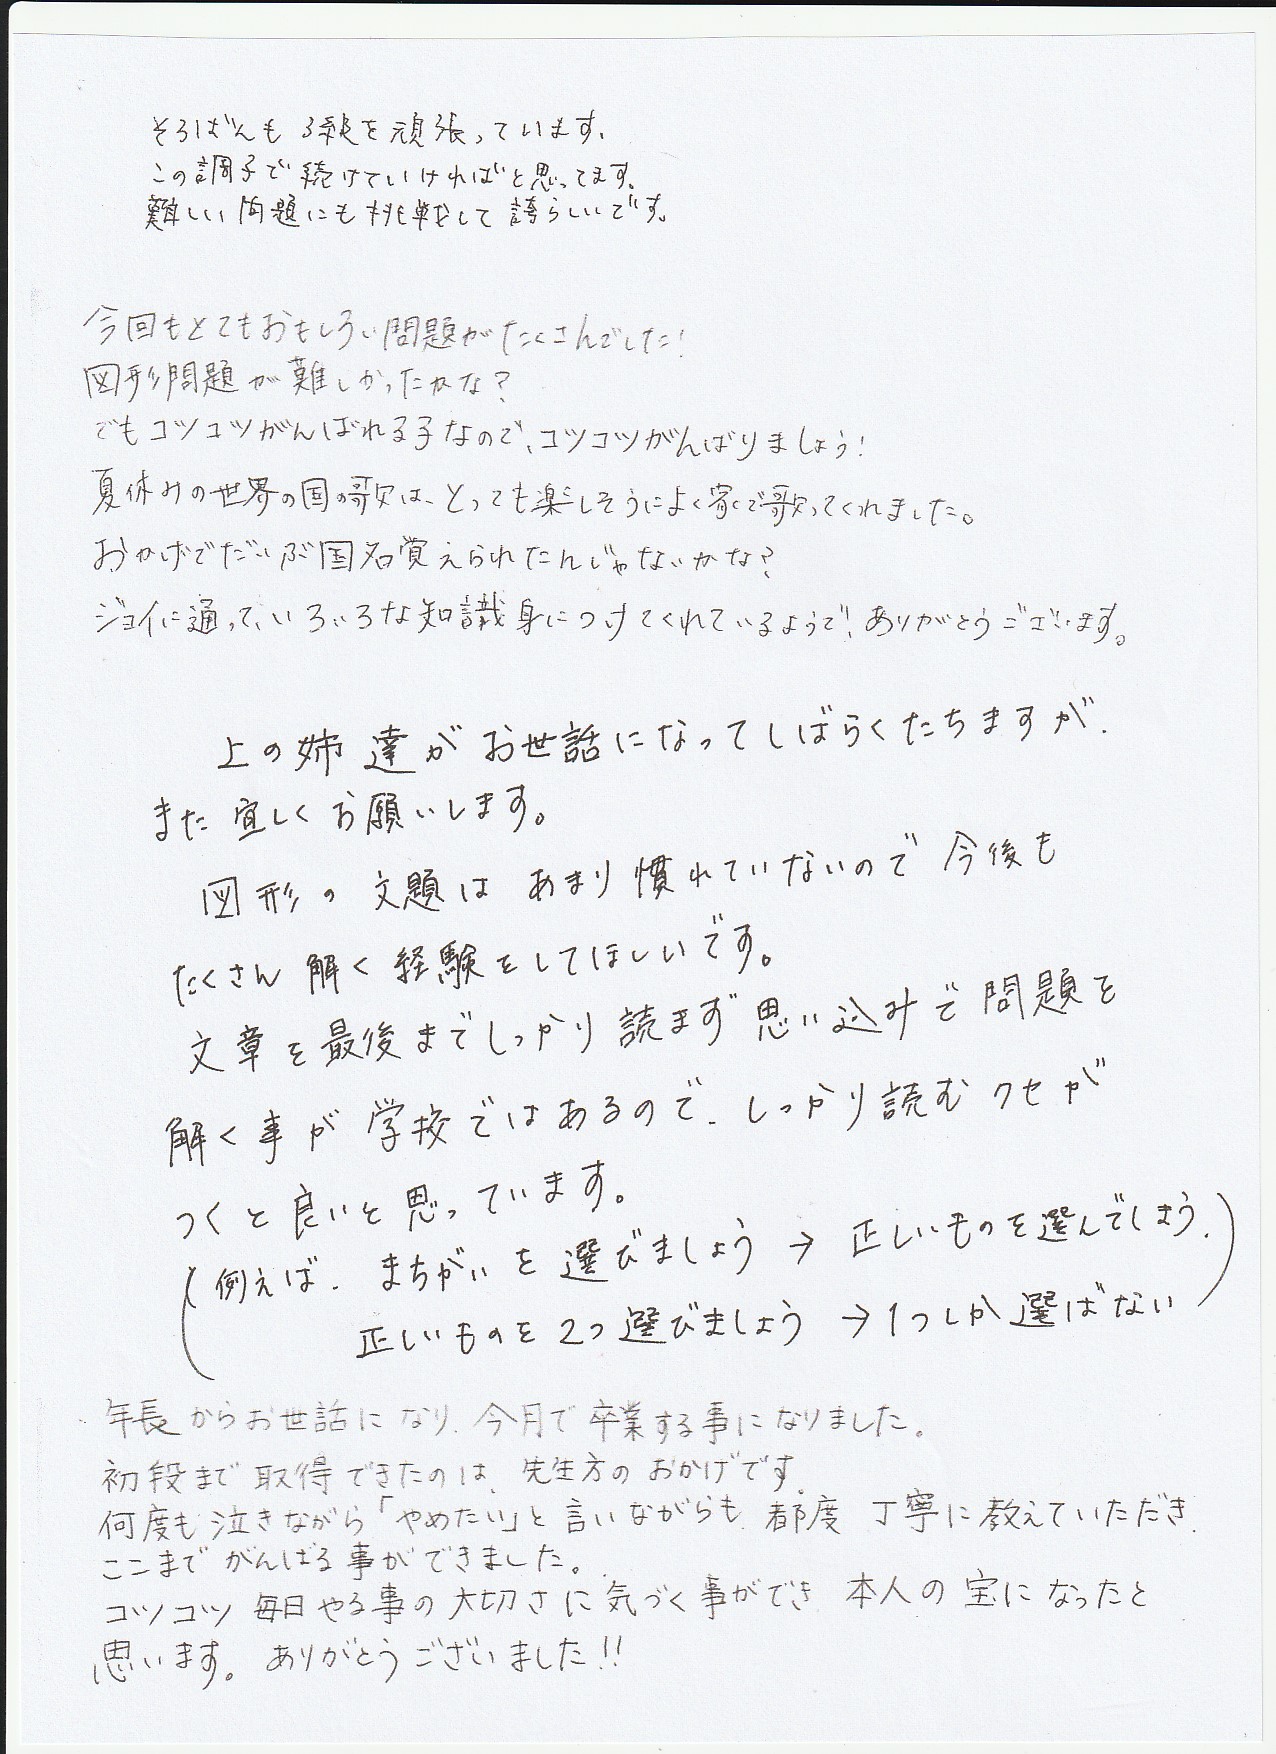 そろばんも3級を頑張っています、
この調子で続けていければと思ってます。
難しい問題にも挑戦して誇らしいです。
今回もとてもおもしろい問題がたくさんでした!
図形問題が難しかったかな?
でもコツコツがんばれる子なので、コツコツがんばりましょう!
夏休みの世界の国の歌は、とっても楽しそうによく家で歌ってくれました。
おかげでだいぶ国名覚えられたんじゃないかな?
ジョイに通って、いろいろな知識身につけてくれているようで、ありがとうございます。
上の姉達がお世話になってしばらくたちますが、
また宜しくお願いします。
図形の文題はあまり慣れていないので今後も
たくさん解く経験をしてほしいです。
文章を最後までしっかり読まず思い込みで問題を
解く事が学校ではあるので、しっかり読むクセが
つくと良いと思っています。
(例えば、まちがいを選びましょう→正しいものを選んでしまう、)
正しいものを2つ選びましょう→1つしか選ばない
年長からお世話になり、今月で卒業する事になりました。
初段まで取得できたのは、先生方のおかげです。
何度も泣きながら「やめたい」と言いながらも、都度丁寧に教えていただき、
ここまでがんばる事ができました。
コツコツ毎日やる事の大切さに気づく事ができ本人の宝になったと
思います。ありがとうございました!!